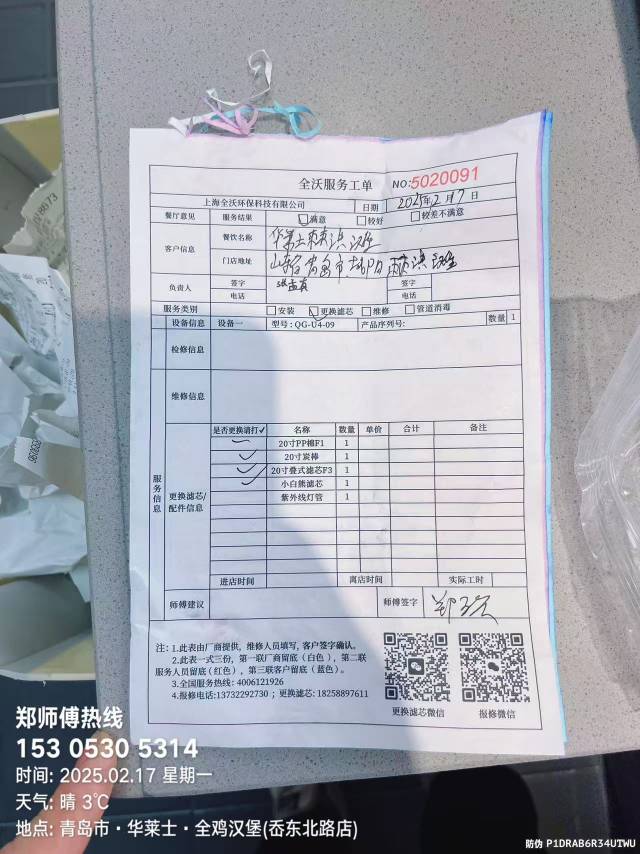 全沃服务工单 NO:5020091
上海全沃环保科技有限公司 日期 2025年2月17日
餐厅意见 服务结果 满意 较好 较差不满意
客户信息 餐饮名称
门店地址 山东省青岛市
负责人 签字 签字
电话 电话
服务类别 安装 更换滤芯 维修 管道消毒
设备信息 设备一 型号:QG-U4-09 产品序列号: 数量 1
检修信息
服务信息
维修信息
更换滤芯/配件信息
是否更换请打✓ 名称 数量 单价 合计 备注
20寸PP棉F1 1
✓ 20寸炭棒 1
✓ 20寸叠式滤芯F3 1
✓ 小白熊滤芯 1
紫外线灯管 1
进店时间 离店时间 实际工时
师傅建议 师傅签字
注: 1.此表由厂商提供, 维修人员填写, 客户签字确认。
2.此表一式三份, 第一联厂商留底(白色), 第二联
服务人员留底(红色), 第三联客户留底(蓝色)。
3.全国服务热线: 4006121926
4.报修电话:13732292730 ; 更换滤芯: 18258897611
更换滤芯微信 报修微信
郑师傅热线
153 0530 5314
时间: 2025.02.17 星期一
天气: 晴 3℃
地点: 青岛市·华莱士·全鸡汉堡(岙东北路店)
防伪 P1DRAB6R34UTWU